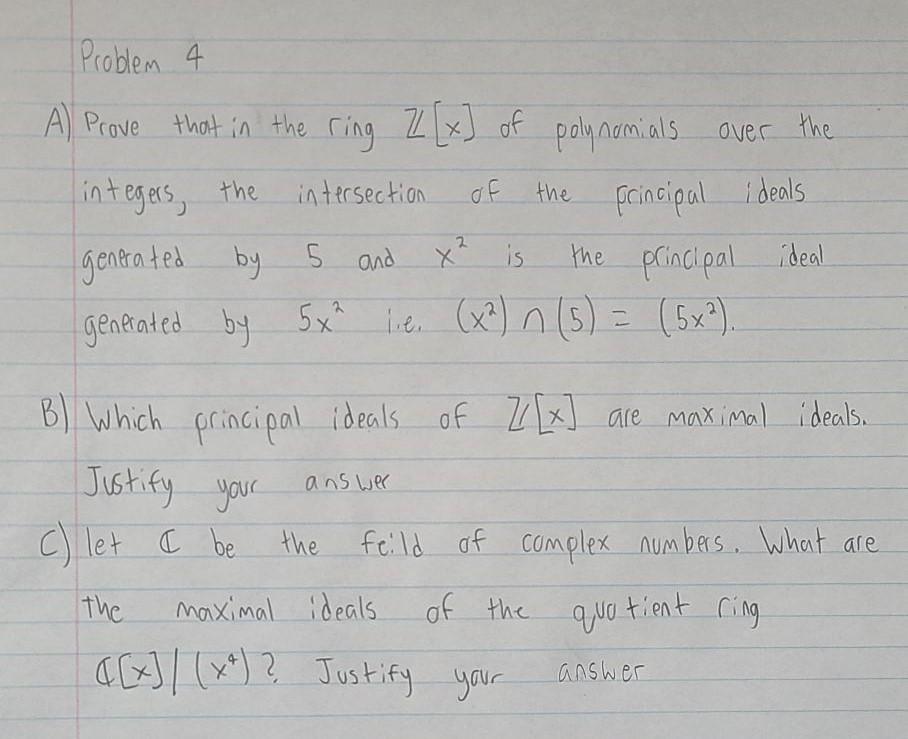 Problem 4
A) Prove that in the ring ℤ[x] of polynomials over the
integers, the intersection of the principal ideals
generated by 5 and x² is the principal ideal
generated by 5x² i.e. (x²) ∩ (5) = (5x²).
B) Which principal ideals of ℤ[x] are maximal ideals.
Justify your answer
C) let ℂ be the feild of complex numbers. What are
the maximal ideals of the quotient ring
ℂ[x]/(x⁴)? Justify your answer